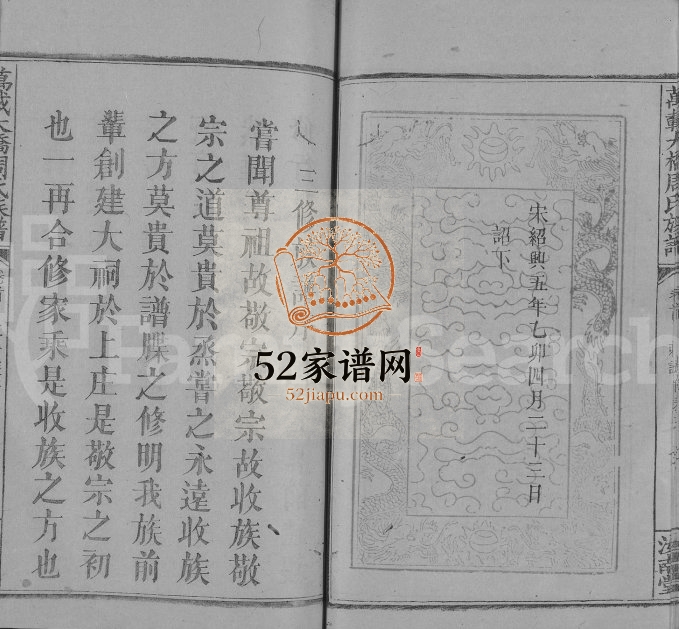 萬載大橋周氏族譜
宋紹興五年乙卯四月二十三日
詔下
三修
嘗聞尊祖故敬宗敬宗故收族敬
宗之道莫貴於烝嘗之永遠收族
之方莫貴於譜牒之修明我族前
輩創建大祠於上庄是敬宗之初
也一再合修家乘是收族之方也
萬載大橋周氏族譜
52家谱网
52jiapu.com